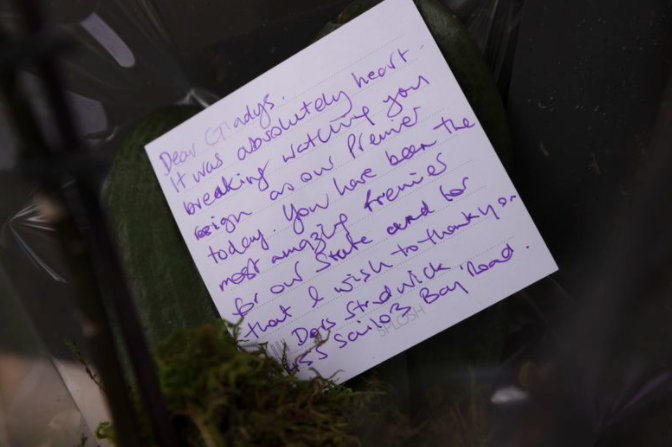 Dear Gladys.
It was absolutely heart-
breaking watching you
resign as our Premier
today. You have been the
most amazing Premier
for our State and for
that I wish to thank you
Strdwick
55 Sailors Bay Road.
SPLOSH